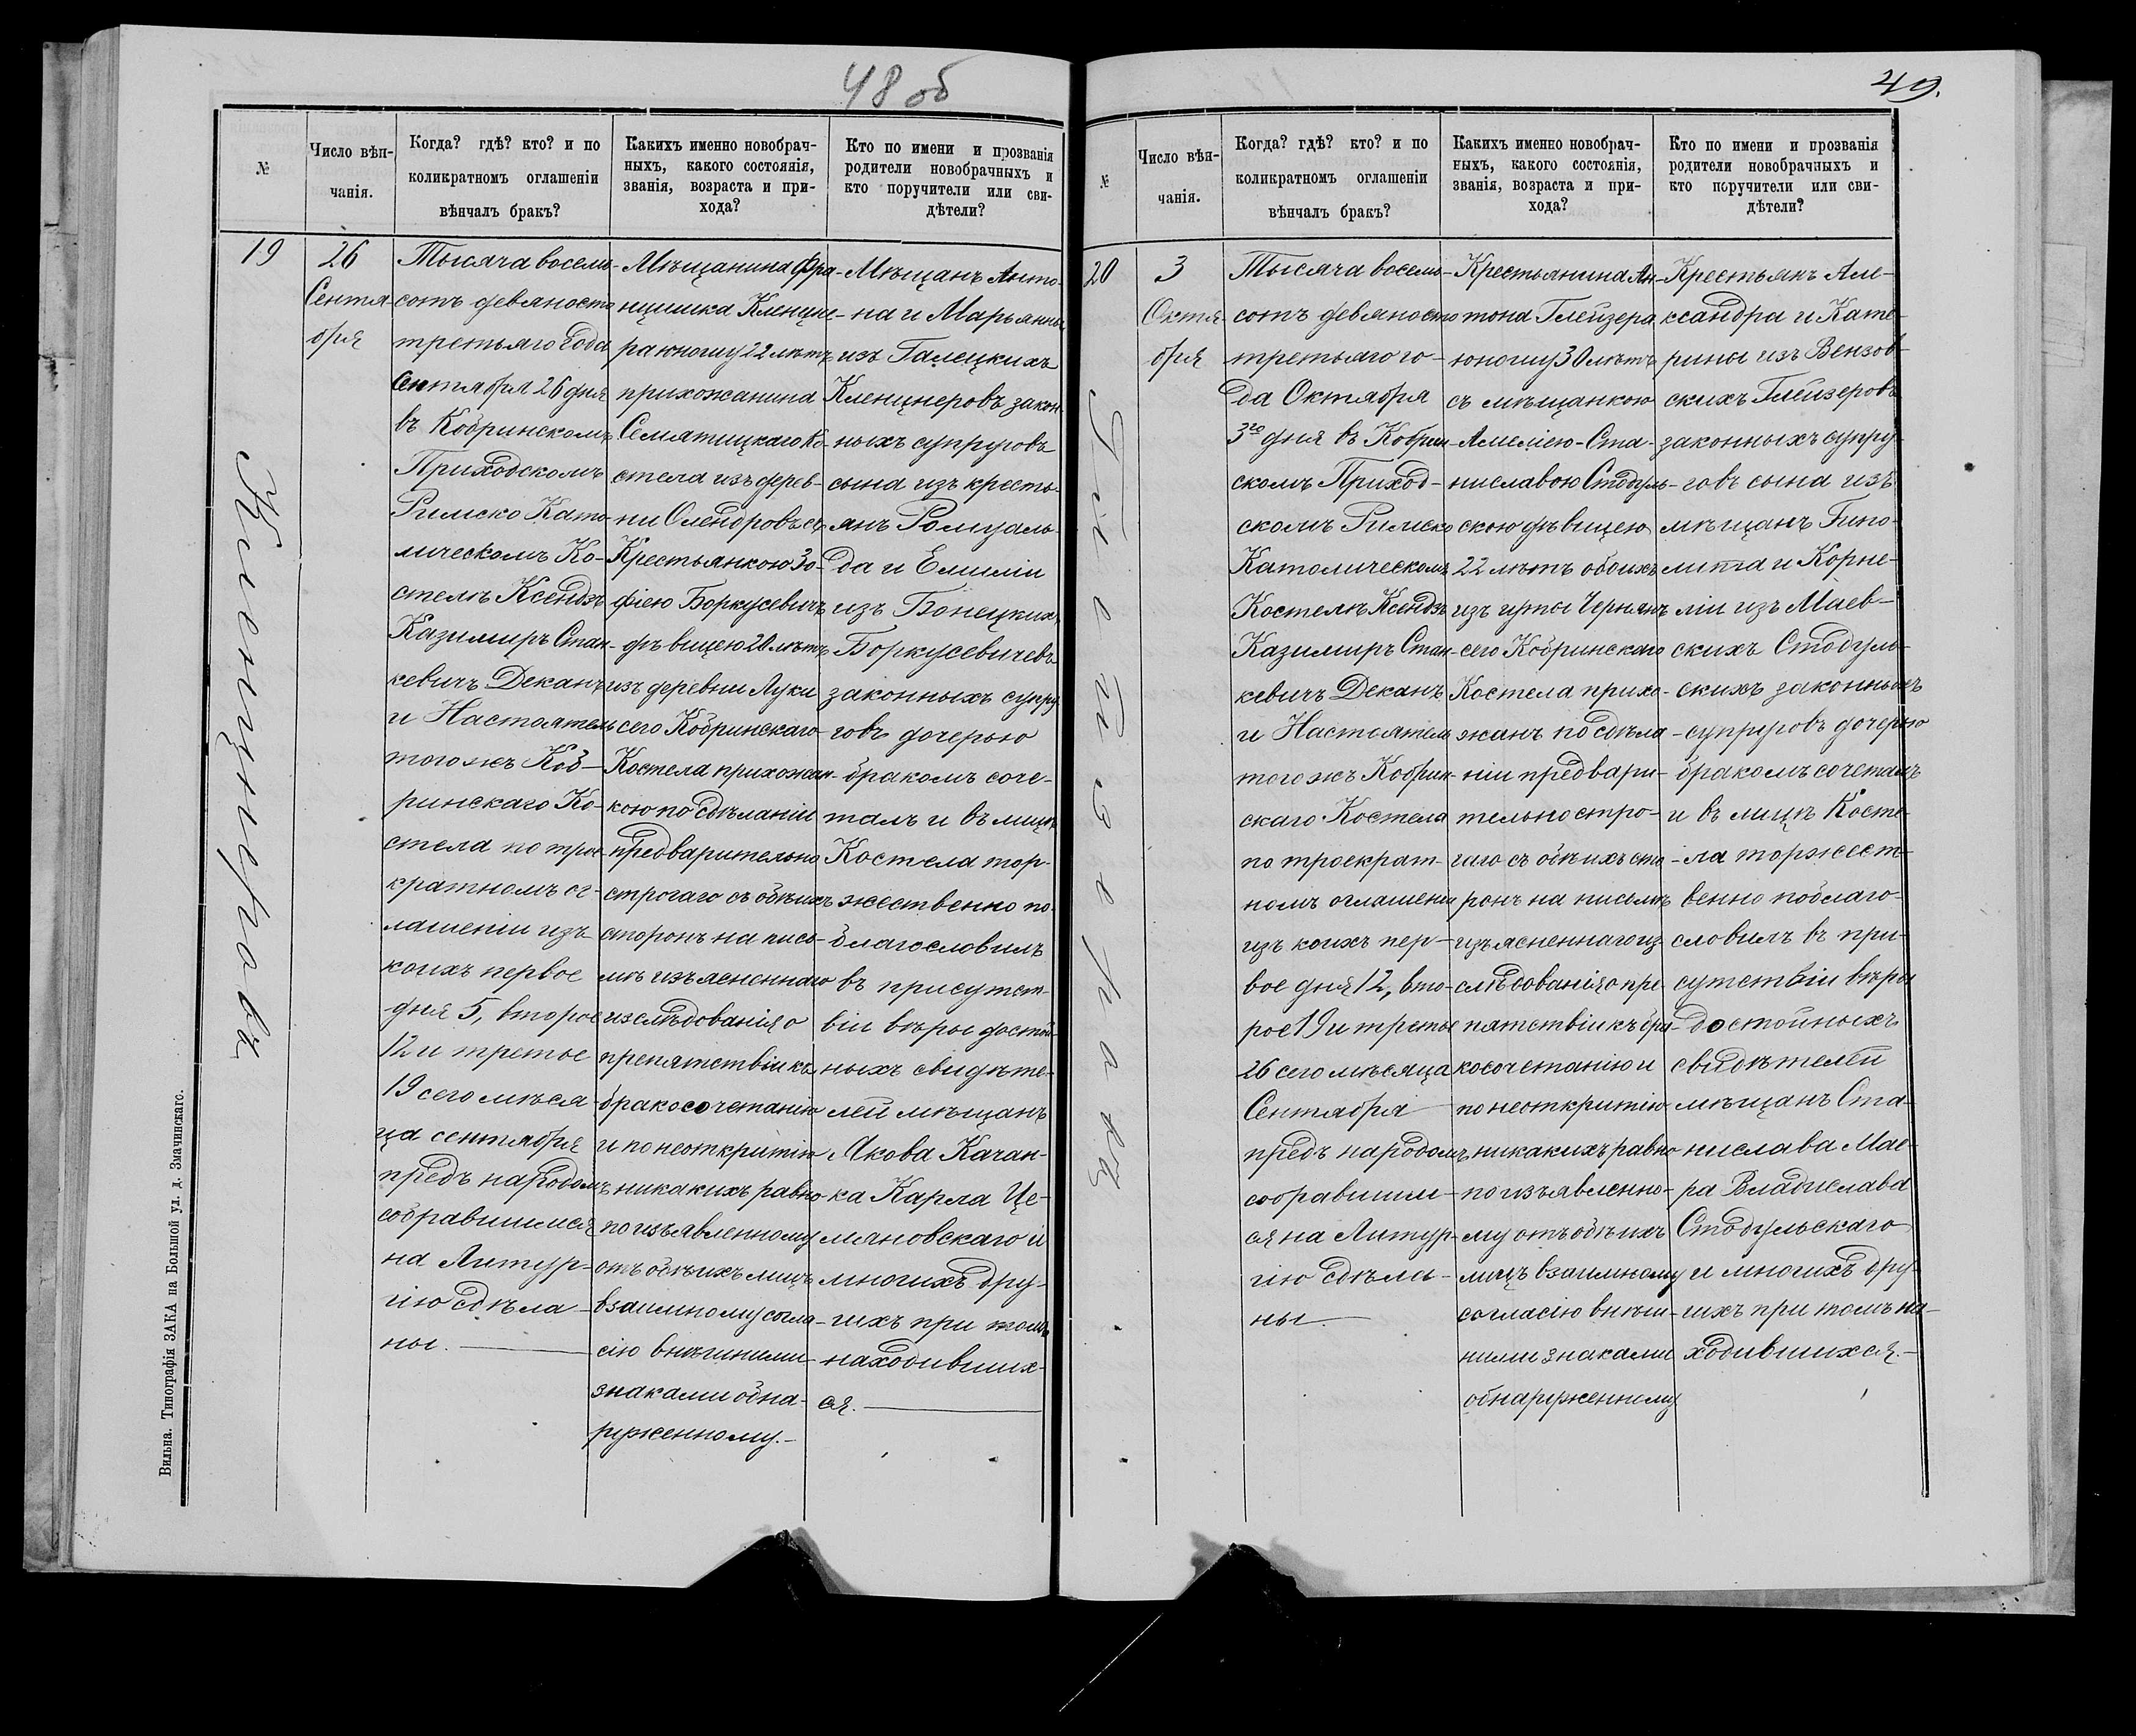 48 об
№
Число вѣн-
чанія.
Когда? гдѣ? кто? и по
коликратномъ оглашеніи
вѣнчалъ бракъ?
Какихъ именно новобрач-
ныхъ, какого состоянія,
званія, возраста и при-
хода?
Кто по имени и прозванія
родители новобрачныхъ и
кто поручители или сви-
дѣтели?
19
26
Сентя-
бря
Тысяча восемь-
сотъ девяносто
третьяго Года
Сентября 26 дня
въ Кобринскомъ
Приходскомъ
Римско Като-
лическомъ Ко-
стелѣ Ксендзъ
Казимиръ Стан-
кевичъ Деканъ
и Настоятель
того жъ Коб-
ринскаго Ко-
стела по трое-
кратномъ ог-
лашеніи изъ
коихъ первое
дня 5, второе
12 и третье
19 сего мѣся-
ца сентября
предъ народомъ
собравшимся
на Литур-
гію сдѣла-
ны.
Мѣщанина Фра-
нцишка Кленцне-
ра юношу 22 лѣтъ
прихожанина
Семятицкаго Ко-
стела изъ дерев-
ни Олендровъ съ
Крестьянкою Зо-
фіею Боркусевичъ
дѣвицею 20 лѣтъ
изъ деревни Луки
сего Кобринскаго
Костела прихожан-
кою по сдѣланіи
предварительно
строгаго съ обѣихъ
сторонъ на пись-
мѣ изъясненнаго
изслѣдованія о
препятствіи къ
бракосочетанію
и по неоткритію
никакихъ равно
по изъявленному
отъ обѣихъ лицъ
взаимному согла-
сію внѣшними
знаками обна-
руженному.
Мѣщанъ Анто-
на и Марьянны
изъ Галецкихъ
Кленцнеровъ закон-
ныхъ супруговъ
сына изъ кресть-
янъ Ромуаль-
да и Емиліи
изъ Бонецкихъ
Боркусевичевъ
законныхъ супру-
говъ дочерью
бракомъ соче-
талъ и въ лицѣ
Костела тор-
жественно по-
благословилъ
въ присутст-
віи вѣры достой-
ныхъ свидѣте-
лей мѣщанъ
Якова Качан-
ка Карла Це-
мяновскаго и
многихъ дру-
гихъ при томъ
находивших-
ся.
Кленцнеровъ
Вильна. Типографія ЗАКА на Большой ул. д. Змачинскаго.
49.
№
Число вѣн-
чанія.
Когда? гдѣ? кто? и по
коликратномъ оглашеніи
вѣнчалъ бракъ?
Какихъ именно новобрач-
ныхъ, какого состоянія,
званія, возраста и при-
хода?
Кто по имени и прозванія
родители новобрачныхъ и
кто поручители или сви-
дѣтели?
20
3
Октя-
бря
Тысяча восемь-
сотъ девяносто
третьяго го-
да Октября
3го дня въ Кобрин-
скомъ Приход-
скомъ Римско
Католическомъ
Костелѣ Ксендзъ
Казимиръ Стан-
кевичъ Деканъ
и Настоятель
того жъ Кобрин-
скаго Костела
по троекрат-
номъ оглашеніи
изъ коихъ пер-
вое дня 12, вто-
рое 19 и третье
26 сего мѣсяца
Сентября
предъ народомъ
собравшим-
ся на Литур-
гію сдѣла-
ны
Крестьянина Ан-
тона Глейзера
юношу 30 лѣтъ
съ мѣщанкою
Амеліею-Ста-
ниславою Стодуль-
скою дѣвицею
22 лѣтъ обоихъ
изъ
сего Кобринскаго
Костела прихо-
жанъ по сдѣла-
ніи предвари-
тельно стро-
гаго съ обѣихъ сто-
ронъ на письмѣ
изъясненнаго из-
слѣдованія о пре-
пятствіи къ бра-
косочетанію и
по неоткритію
никакихъ равно
по изъявленно-
му отъ обѣихъ
лицъ взаимному
согласію внѣш-
ними знаками
обнаруженному
Крестьянъ Але-
ксандра и Кате-
рины изъ Вензов-
скихъ Глейзеровъ
законныхъ супру-
говъ сына изъ
мѣщанъ Гипо-
лита и Корне-
ліи изъ Маев-
скихъ Стодуль-
скихъ законныхъ
супруговъ дочерью
бракомъ сочеталъ
и въ лицѣ Косте-
ла торжест-
венно поблаго-
словилъ въ при-
сутствіи вѣры
достойныхъ
свидѣтелей
мѣщанъ Ста-
нислава Мае-
ра Владислава
Стодульскаго
и многихъ дру-
гихъ при томъ на-
ходившихся.
Глейзеровъ